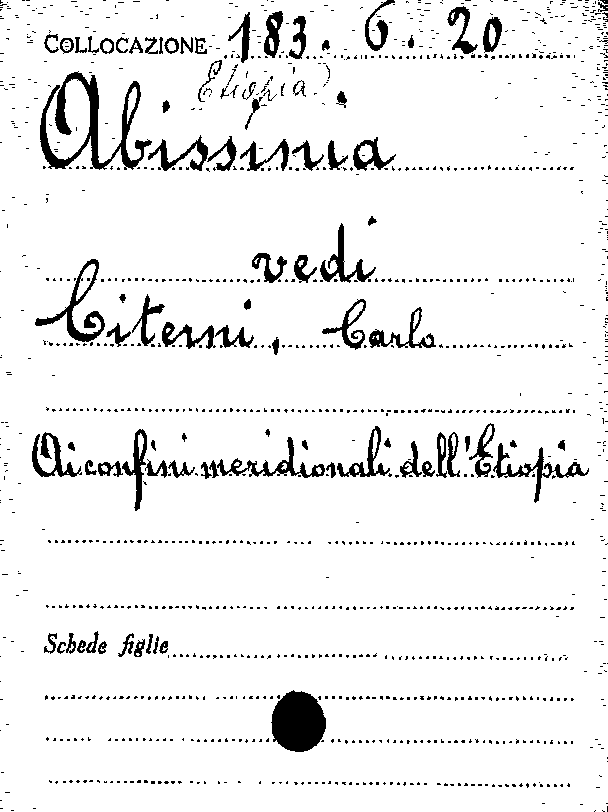 COLLOCAZIONE 183. 6. 20
(Etiopia)
Abissinia
vedi
Citerni, Carlo
Ai confini meridionali dell'Etiopia
Schede figlie